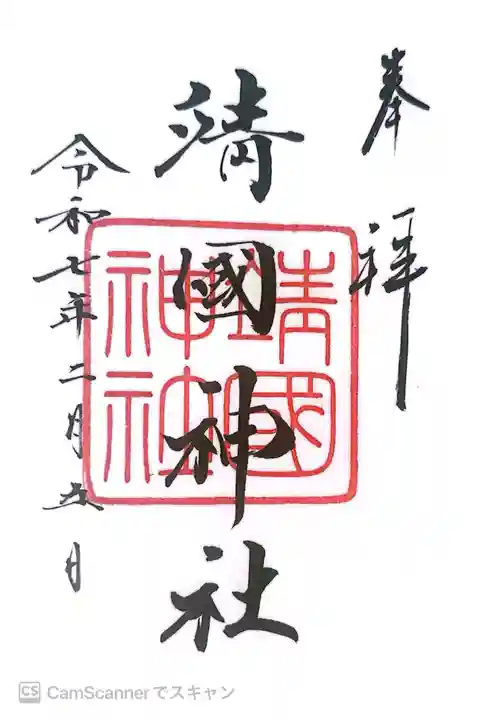 奉拝
靖國神社
靖國
神社
令和七年二月五日
CS CamScannerでスキャン